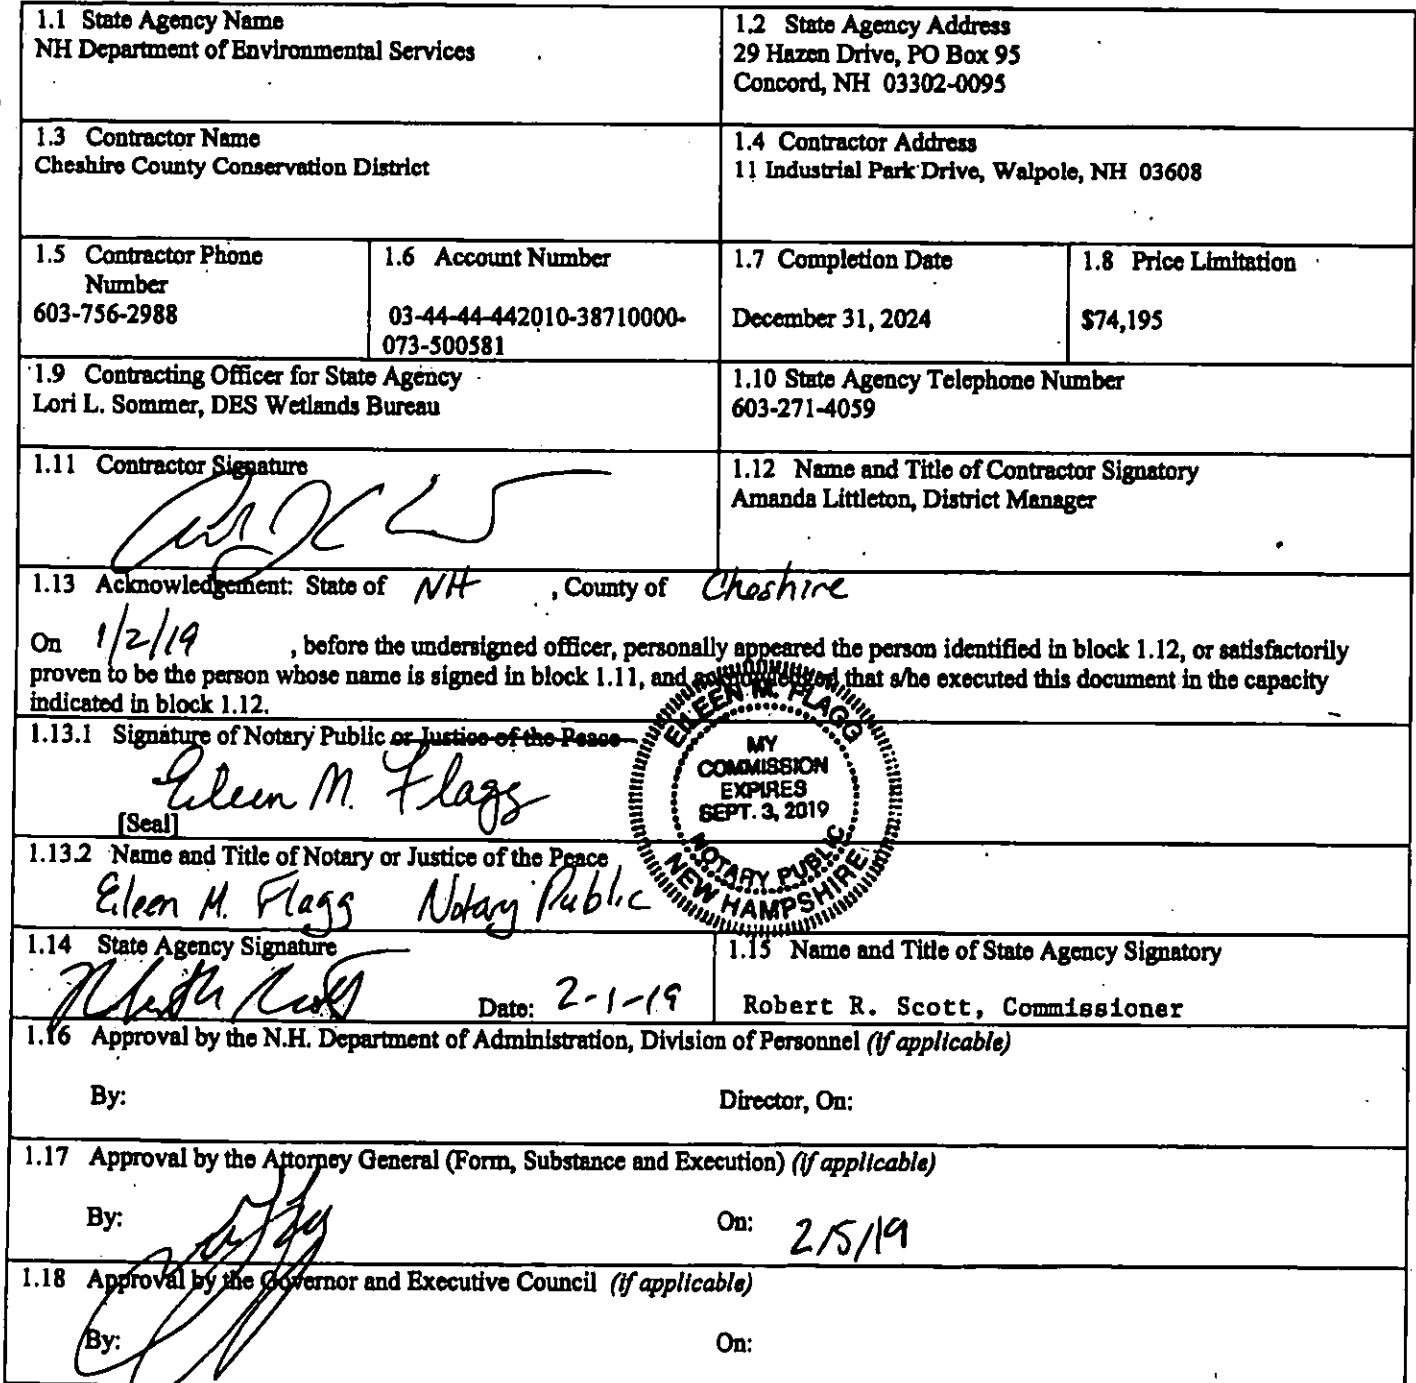 1.1 State Agency Name
NH Department of Environmental Services
1.2 State Agency Address
29 Hazen Drive, PO Box 95
Concord, NH 03302-0095
1.3 Contractor Name
Cheshire County Conservation District
1.4 Contractor Address
11 Industrial Park Drive, Walpole, NH 03608
1.5 Contractor Phone
Number
603-756-2988
1.6 Account Number
03-44-44-442010-38710000-
073-500581
1.7 Completion Date
December 31, 2024
1.8 Price Limitation
$74,195
1.9 Contracting Officer for State Agency
Lori L. Sommer, DES Wetlands Bureau
1.10 State Agency Telephone Number
603-271-4059
1.11 Contractor Signature
1.12 Name and Title of Contractor Signatory
Amanda Littleton, District Manager
1.13 Acknowledgement: State of NH , County of Cheshire
On 1/2/19 , before the undersigned officer, personally appeared the person identified in block 1.12, or satisfactorily
proven to be the person whose name is signed in block 1.11, and acknowledged that s/he executed this document in the capacity
indicated in block 1.12.
1.13.1 Signature of Notary Public or Justice of the Peace
Eileen M. Flagg
[Seal]
EILEEN M. FLAGG
MY
COMMISSION
EXPIRES
SEPT. 3, 2019
NOTARY PUBLIC
NEW HAMPSHIRE
1.13.2 Name and Title of Notary or Justice of the Peace
Eileen M. Flagg Notary Public
1.14 State Agency Signature
Date: 2-1-19
1.15 Name and Title of State Agency Signatory
Robert R. Scott, Commissioner
1.16 Approval by the N.H. Department of Administration, Division of Personnel (if applicable)
By:
Director, On:
1.17 Approval by the Attorney General (Form, Substance and Execution) (if applicable)
By:
On: 2/5/19
1.18 Approval by the Governor and Executive Council (if applicable)
By:
On: